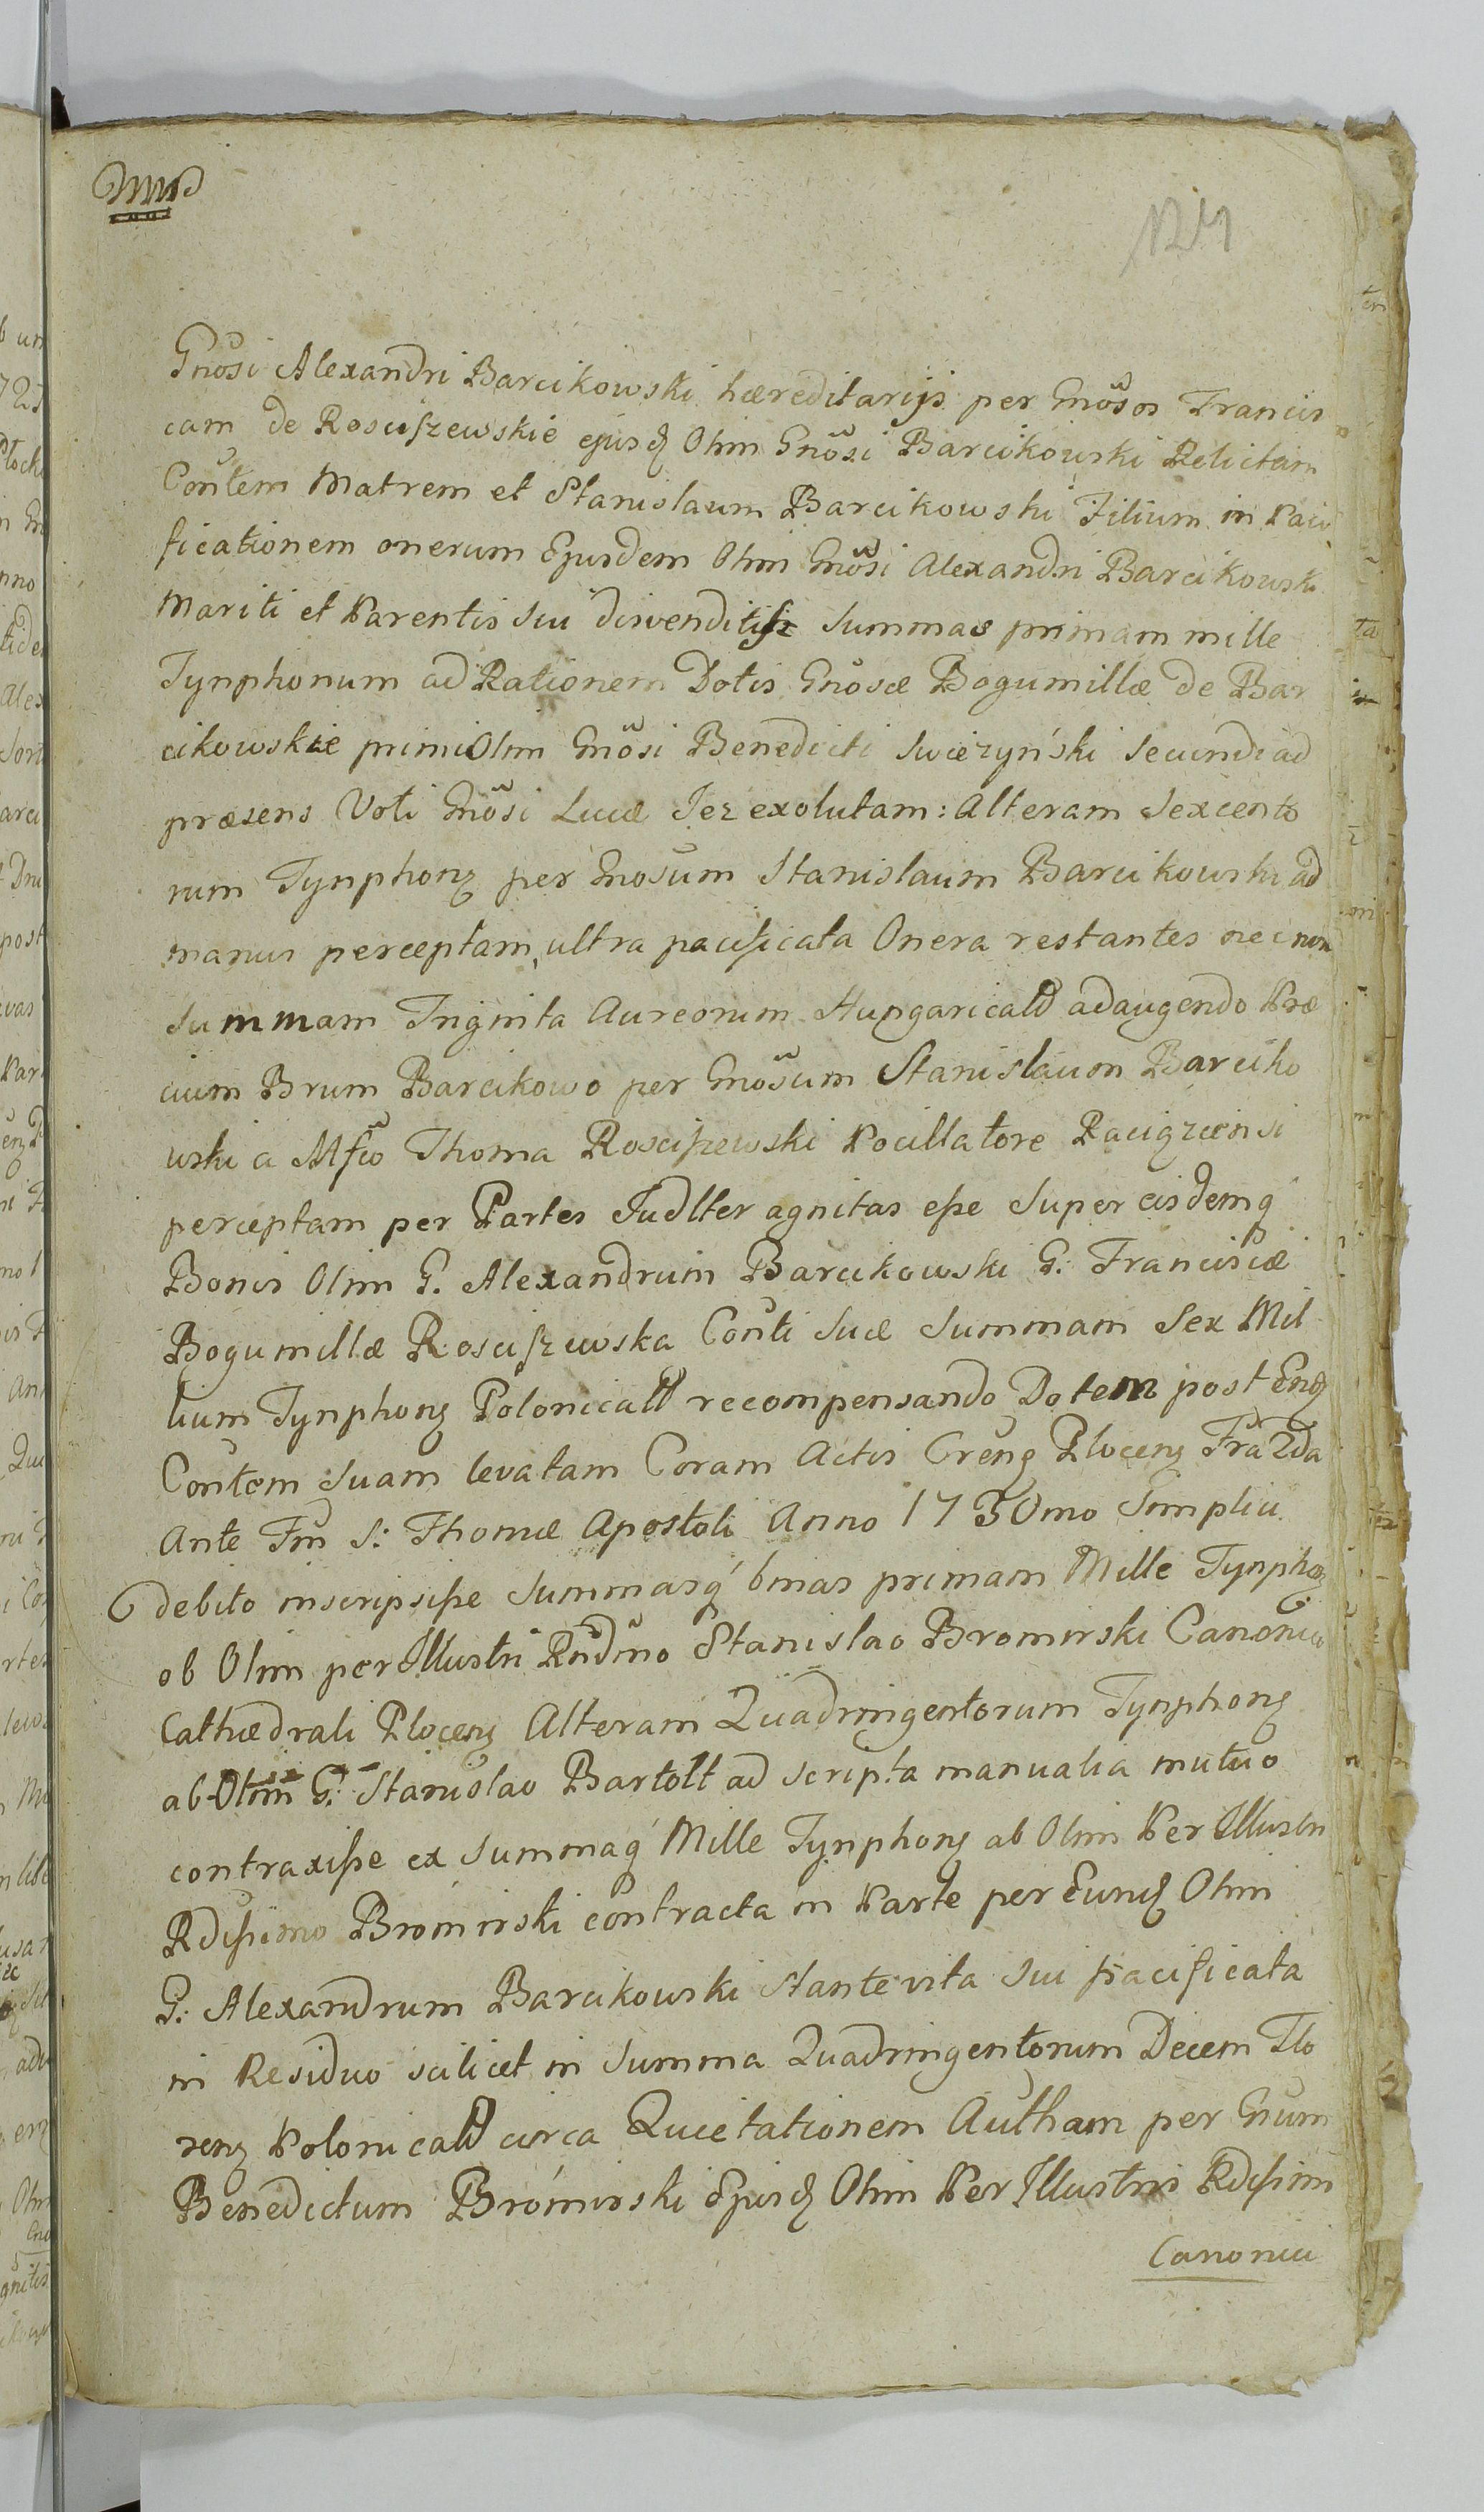 124
Gnosi Alexandri Barcikowski hæreditarijs per Gnosos Francis
cam de Rosciszewskie ejusq Olim Gnosi Barcikowski Relictam
Contem Matrem et Stanislaum Barcikowski Filium in Paci
ficationem onerum Ejusdem Olim Gnosi Alexandri Barcikowski
Mariti et Parentis Sui divenditis Summas primam mille
Tynphonum ad Rationem Dotis Gnosæ Bogumillæ de Bar
cikowskie primi Olim Gnosi Benedicti Swiezyński Secundi ad
præsens Voti Gnosi Lucæ Jez exolutam: Alteram Sexcento
rum Tynphonz per Gnosum Stanislaum Barcikowski ad
manus perceptam, ultra pacificata Onera restantes nec non
Summam Triginta Aureorum Hungaricald adaugendo Præ
cium Brum Barcikowo per Gnosum Stanislaum Barciko
wski a Mfco Thoma Rosciszewski Pocillatore Raciązcensi
perceptam per Partes Judlter agnitas esse Super eisdemq
Bonis Olim G. Alexandrum Barcikowski G: Franciscæ
Bogumillæ Rosciszewska Conti Suæ Summam Sex Mil
lium Tynphonz Polonicald recompensando Dotem post Enq
Contem Suam levatam Coram Actis Crenz Plocenz Fra 2da
Ante Fm S: Thomæ Apostoli Anno 1730mo Simplici
debito inscripsisse Summasq binas primam Mille Tynphoz
ob Olim per Illustri Rndmo Stanislao Bromirski Canonico
Cathædrali Plocenz Alteram Quadringentorum Tynphonz
ab Olim G: Stanislao Bartolt ad scripta manualia mutuo
contraxisse ex Summaq Mille Tynphonz ab Olim Per Illustri
Rdissimo Bromirski contracta in Parte per Eunq Olim
G: Alexandrum Barcikowski stante vita Sui pacificata
in Residuo scilicet in Summa Quadringentorum Decem Flo
renz Polonicald circa Quietationem Autham per Gnum
Benedictum Bromirski Ejusq Olim Per Illustris Rdissimi
Canonici